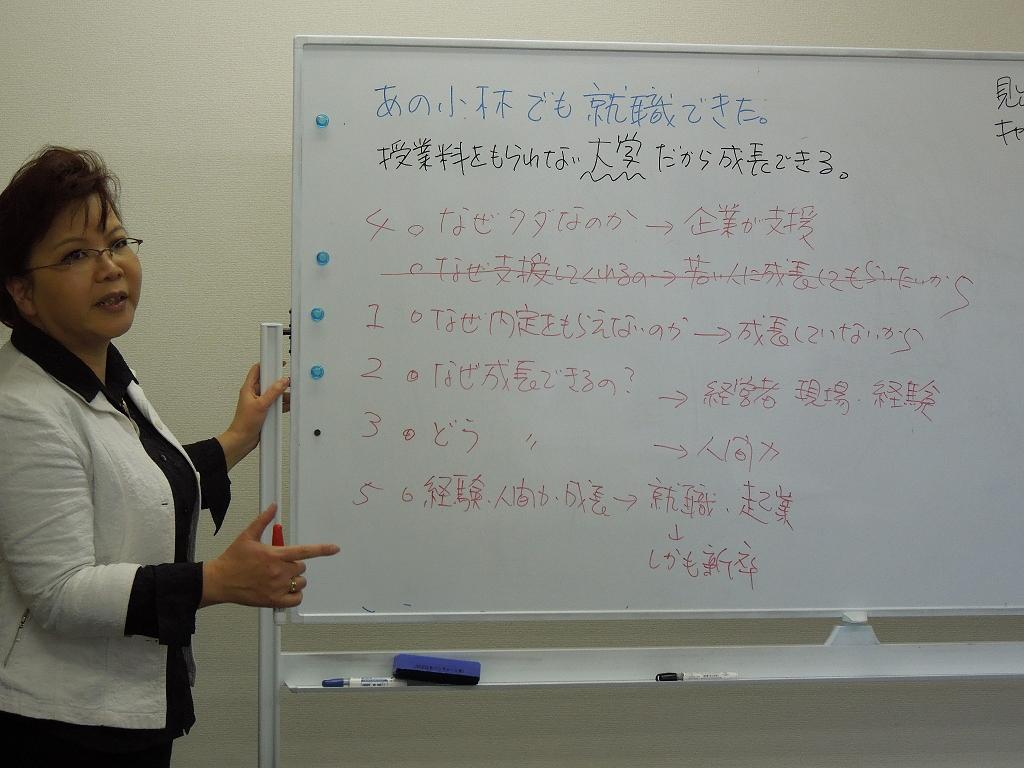 あの小林でも就職できた。
授業料をもられない大学だから成長できる。
4 。なぜタダなのか → 企業が支援
。なぜ支援してくれるの→若い人に成長してもらいたいから
1 。なぜ内定をもらえないのか → 成長していないから
2 。なぜ成長できるの? → 経営者 現場・経験
3 。どう 〃 → 人間力
5 。経験・人間力・成長→ 就職・起業
↓
しかも新卒
見
キャ